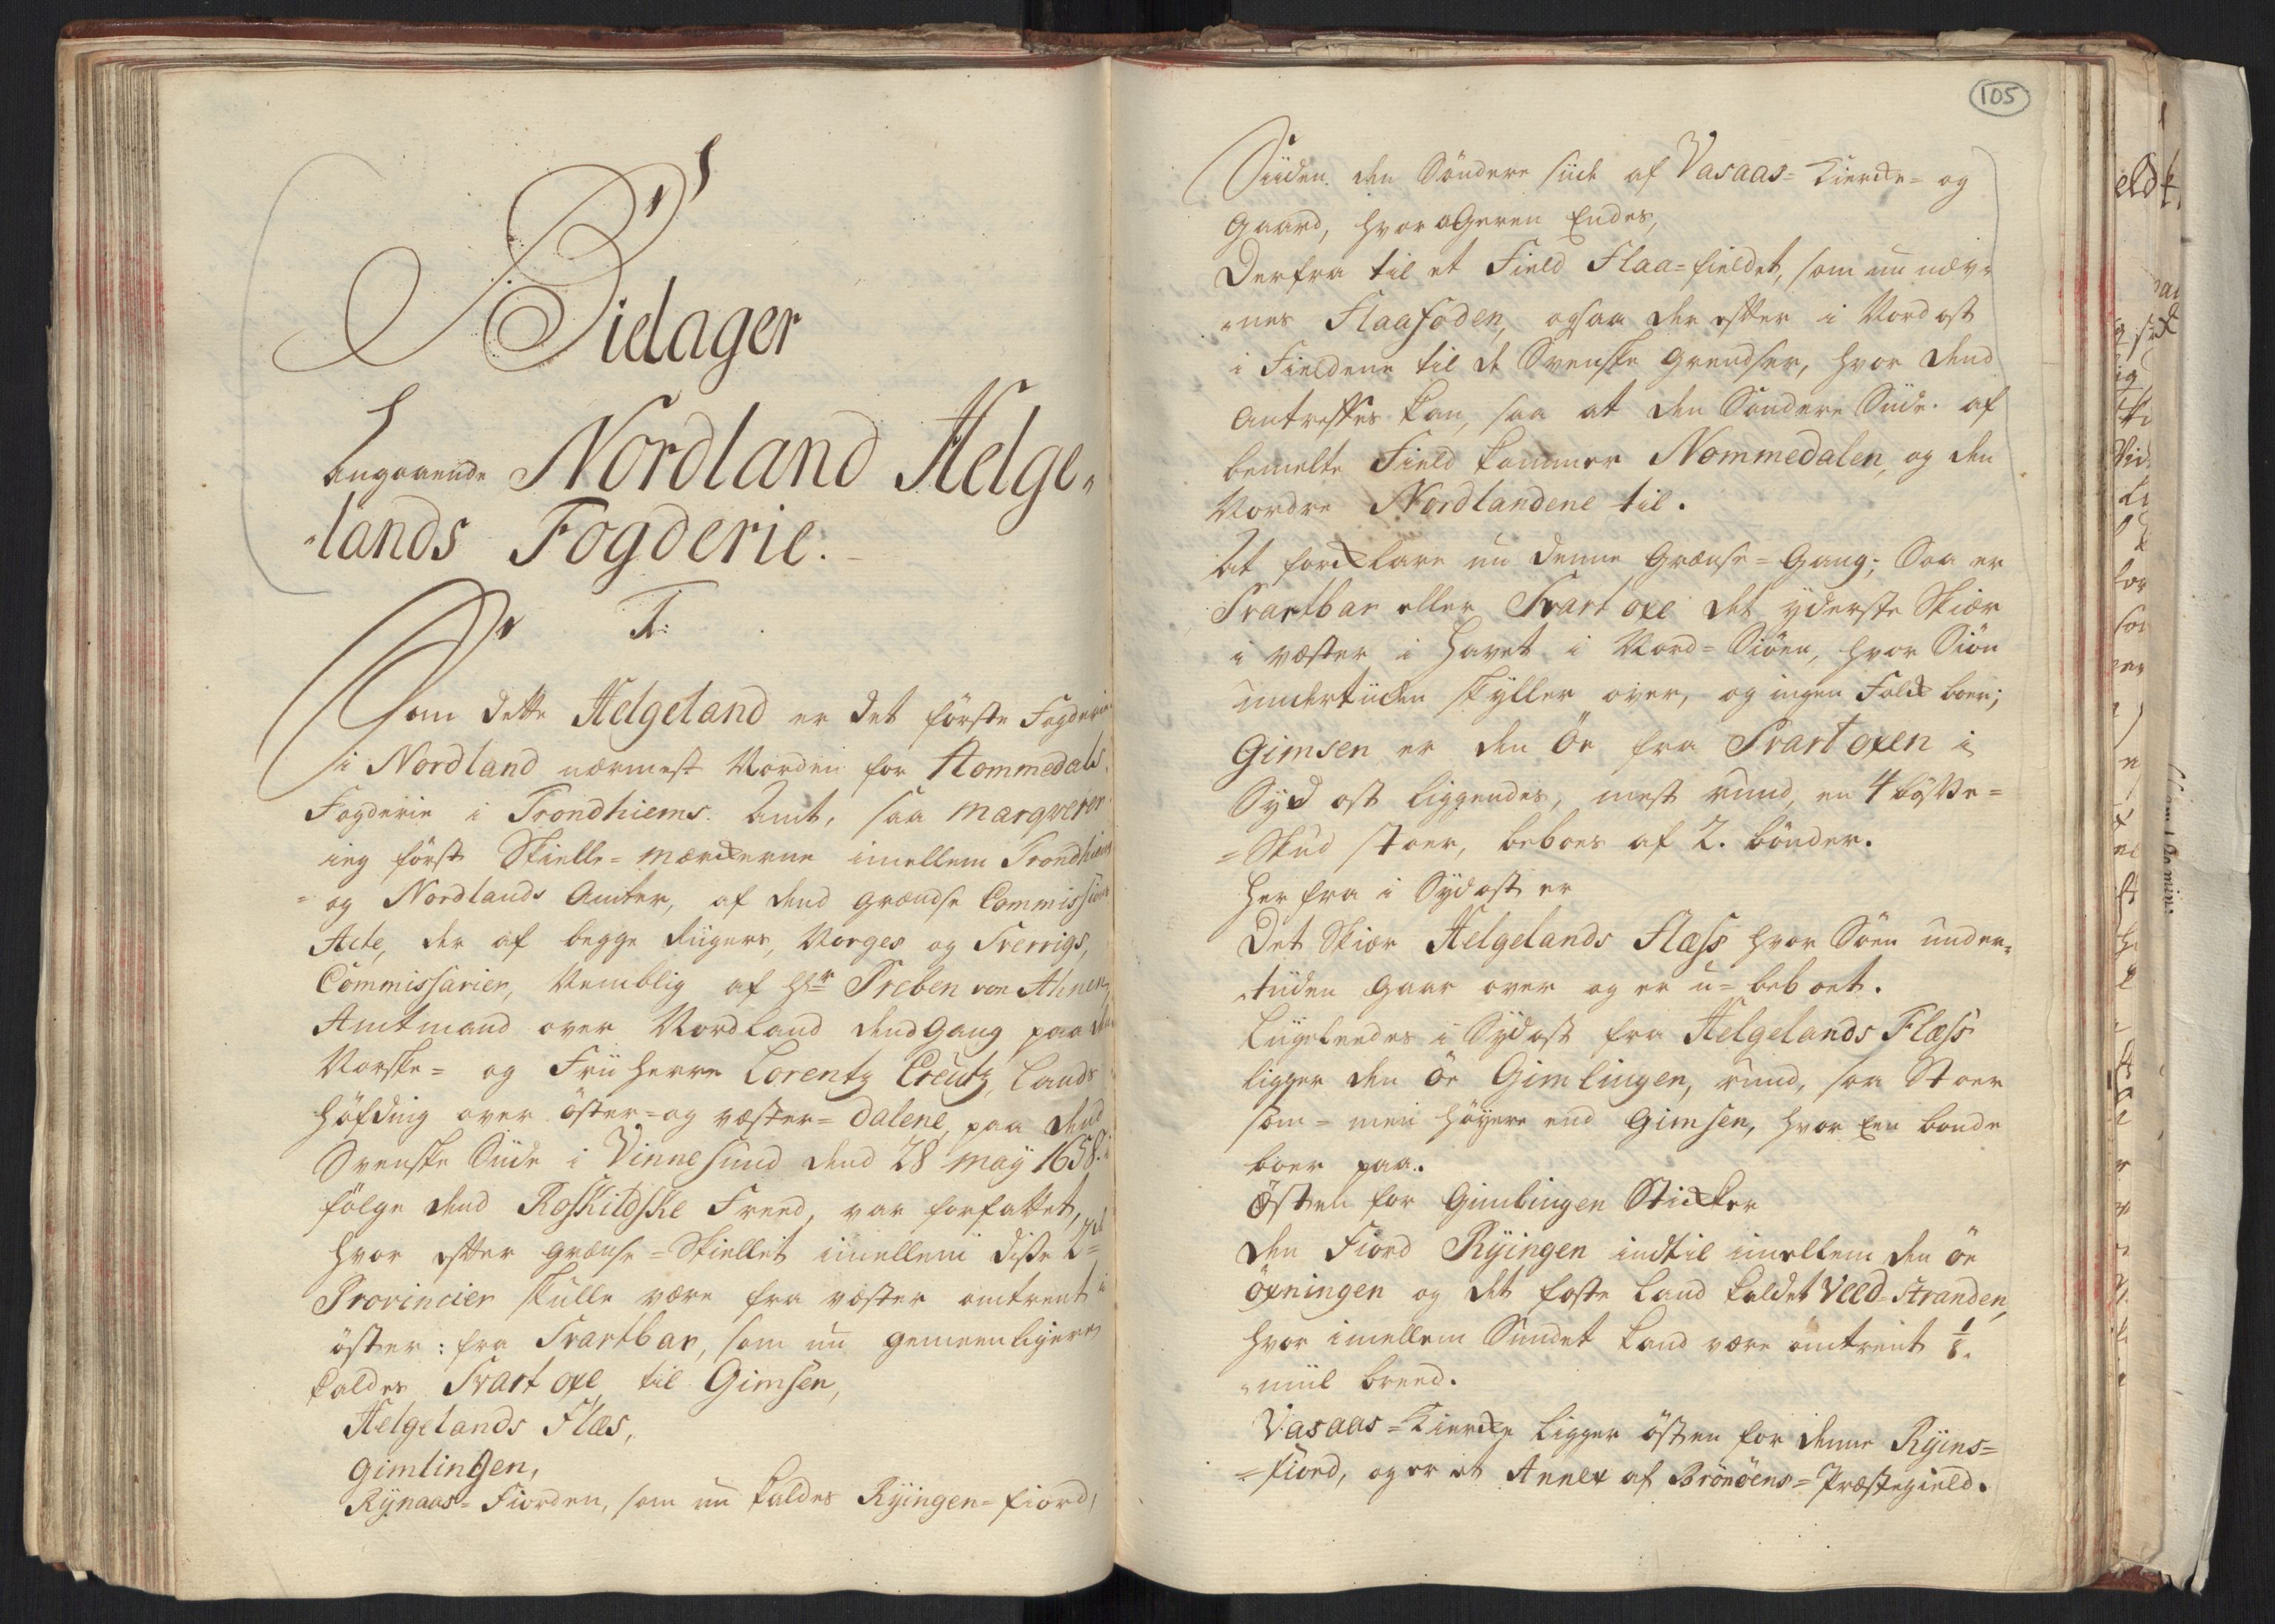 Bielager
angaaende Nordland Helge„
„lands Fogderie.
1:
Som dette Helgeland er det förste Fogderie
i Nordland nærmest Norden for Nommedals
Fogderie i Trondhiems Amt, saa marqverer
ieg först Skielle=mærckerne imellem Trondhiems
= og Nordlands Amter, af dend grændse Commissions
Acte, der af begge Riigers, Norges og Sverrigs,
Commissarier, Nemblig af Hr Preben von Ahnen,
Amtmand over Nordland dend Gang paa den
Norske= og Frii Herre Lorentz Creutz, Lands
höfding over öster=og væster=Dalene, paa dend
Svenske Siide i Vinnesund dend 28 may 1658. i
fölge dend Roskildske Freed, var forfattet,
hvor efter grænse=Skiellet imellem disse 2de
Provincier skulle være fra væster omtrent i
öster: fra Svartbar, som nu gemeenligere
kaldes Svart oxe til Gimsen,
Helgelands Flæs,
Gimlingen,
Rynaas=Fiorden, som nu kaldes Ryingen=fiord,
105
Siiden den Söndere siide af Vasaas=Kiercke= og
Gaard, hvor ageren Endes,
Derfra til et Field Flaa=fieldet, som nu næv„
„nes Flaafoden, ogsaa der efter i Nordost
i Fieldene til de Svenske grendser, hvor dend
antreffes kan, saa at den Söndere Siide af
bemelte Field kommer Nommedalen, og den
Nordre Nordlandene til.
At forcklare nu denne Grænse=Gang; Saa er
Svartbar eller Svart oxe det yderste Skiær
i væster i Havet i Nord=Siöen, hvor Siön
undertiiden skyller over, og ingen Folck boer;
Gimsen er den Öe fra Svart oxen i
Syd ost liggendes, mest rund, en 4 bösse=
=Skud stoer, beboes af 2. bönder.
Her fra i Sydost er
Det Skiær Helgelands Flæss hvor Söen under„
„tiiden gaar over og er u=beboet.
Liigeleedes i Sydost fra Helgelands Flæss
ligger den Öe Gimlingen, rund, saa Stoer
som= men höyere end Gimsen, hvor Een bonde
boer paa.
Östen for Gimlingen Sticker
den Fiord Ryingen indtil imellem den öe
öxningen og det faste Land kaldet Veed=Stranden,
hvor imellem Sundet kand være omtrent 1/8.
„miil breed.
Vasaas=Kiercke ligger östen for denne Ryens=
=fiord, og er et Annex af Brönöens=Præstegield.